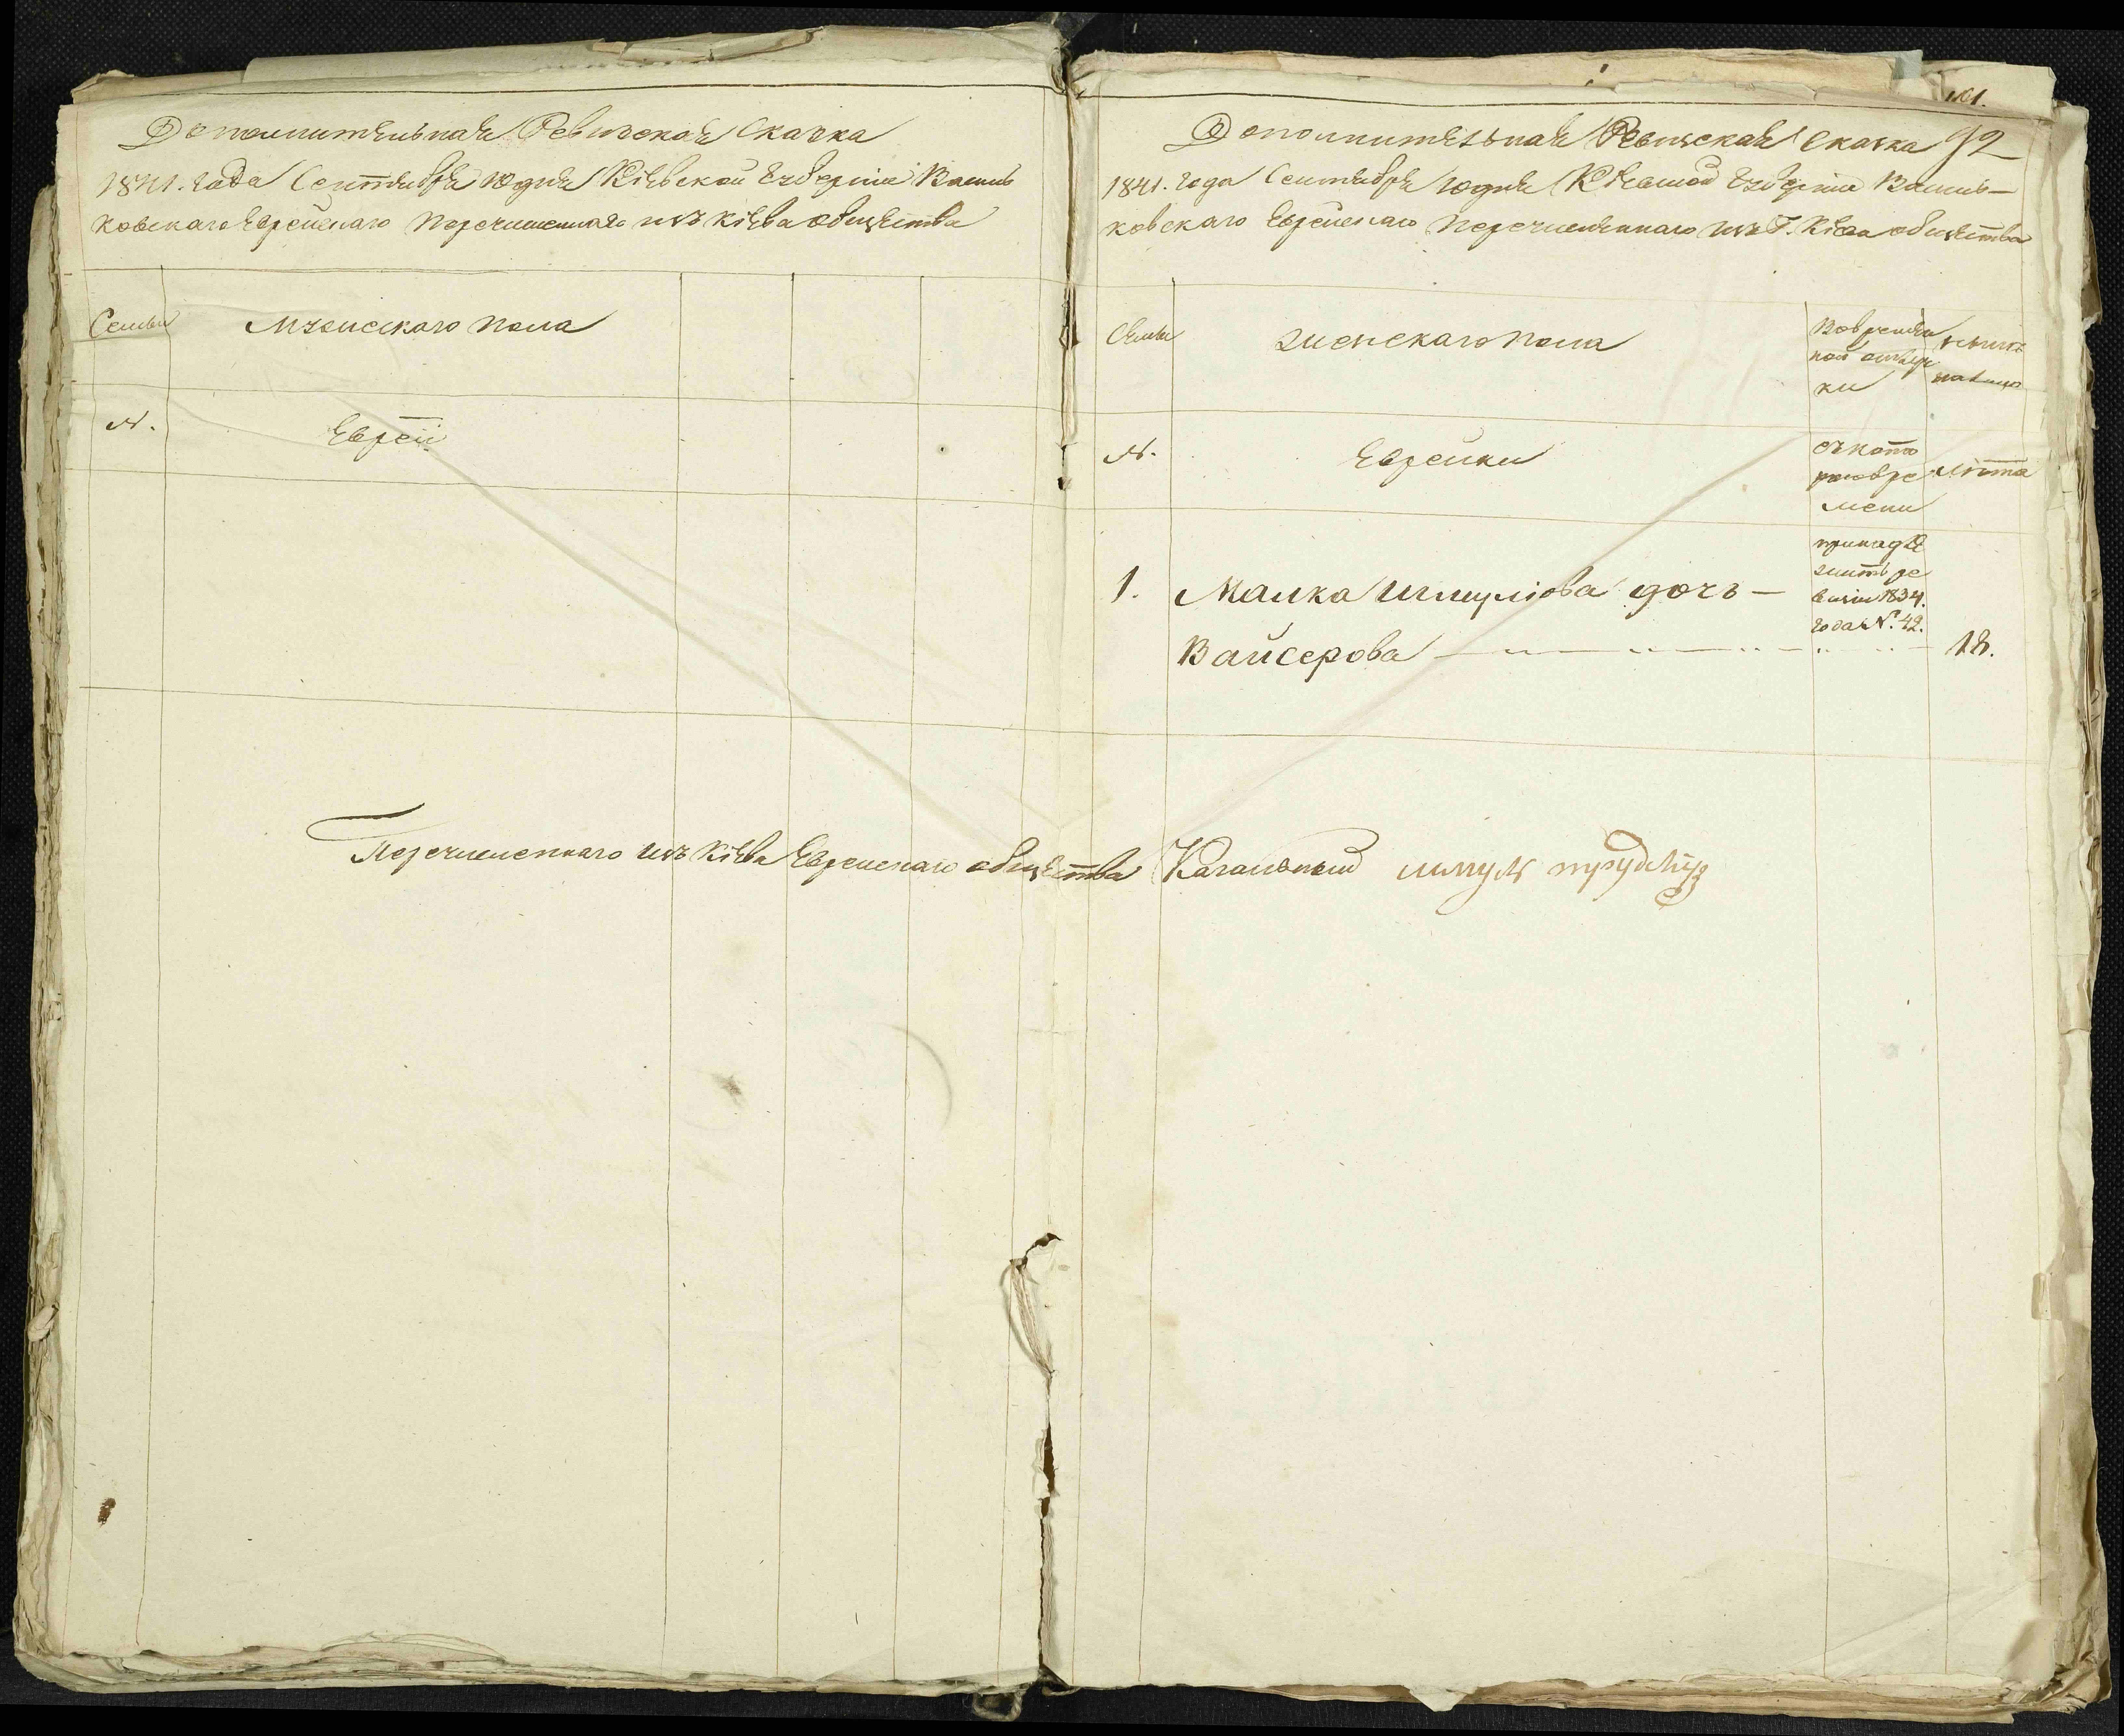 Дополнительная Ревизская Сказка
1841. года Сентября 10 дня Кіевской Губерніи Василь
ковскаго Еврейскаго Перечисленнаго изъ Кіева общества
Семьи
Мужескаго пола
№.
Евреи
101.
92
Дополнительная Ревизская Сказка
1841. года Сентября 10 дня Кіевской Губерніи Василь-
ковскаго Еврейскаго Перечисленнаго изъ Г. Кіева общества
Семьи
Женскаго пола
Во времен
ной отлуч
ки
ныне
на лицо
№.
Еврейки
съ кото
раго вре
мени
лѣта
1.
Малка Шмулiова дочь —
принадле
житъ ре
визіи 1834.
года № 42.
Вайсерова
18.
Перечисленнаго изъ Кіева Еврейскаго общества Кагальный шмуль